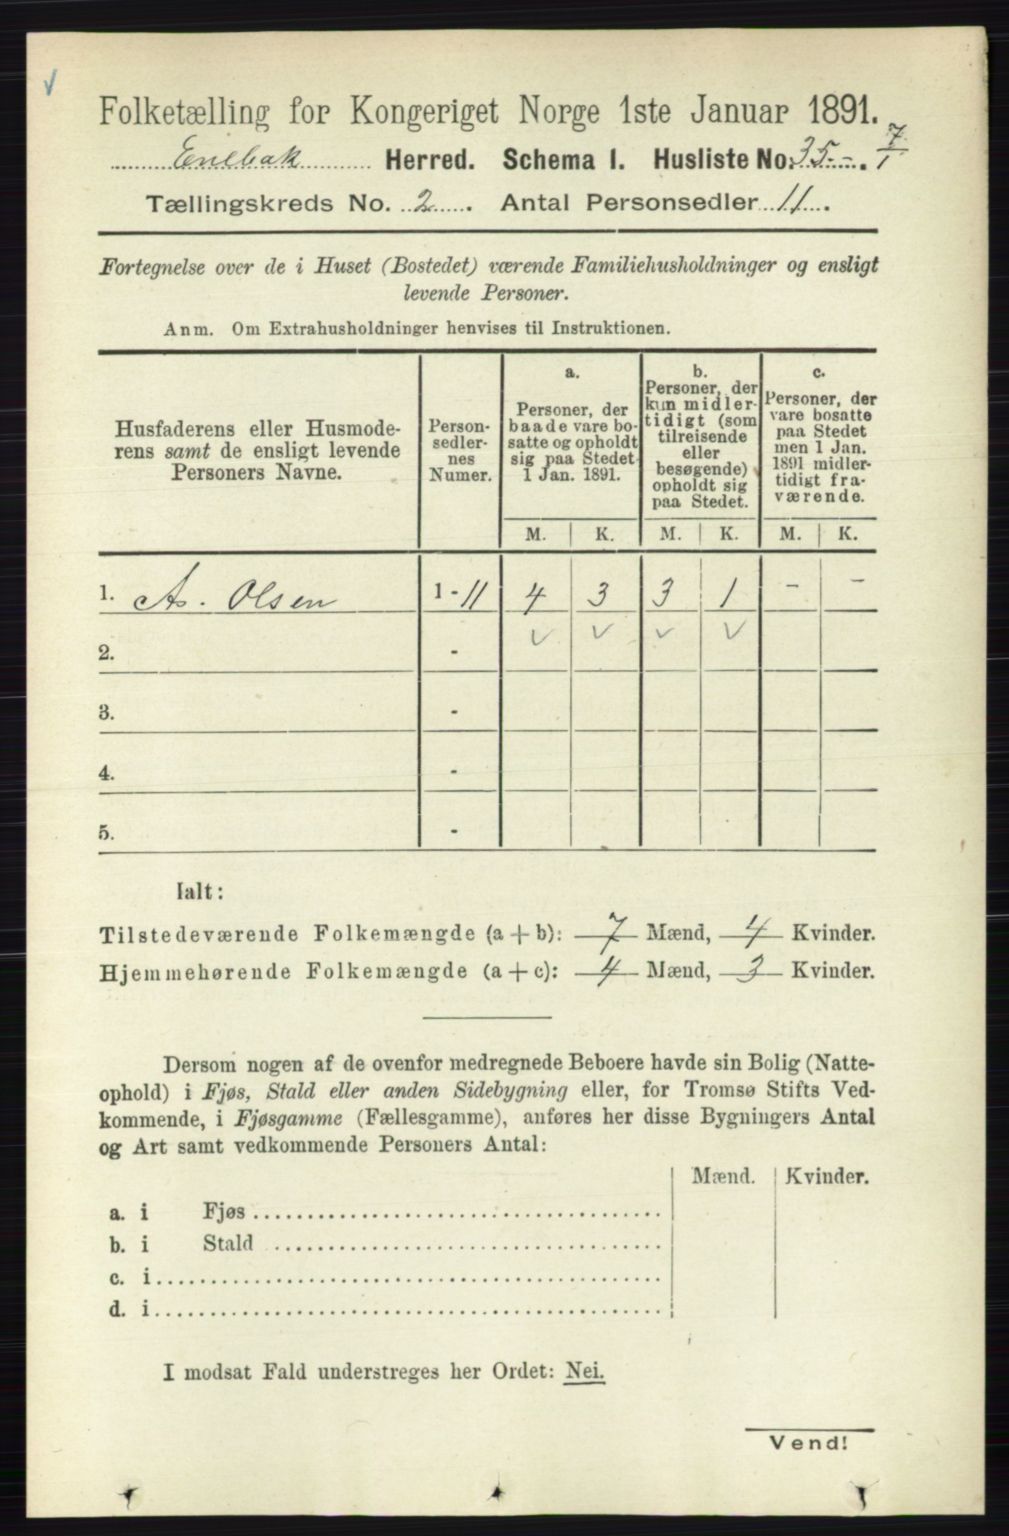 Folketælling for Kongeriget Norge 1ste Januar 1891.
Enebak Herred. Schema 1. Husliste No. 35 -. 7/1
Tællingskreds No. 2. Antal Personsedler 11.
Fortegnelse over de i Huset (Bostedet) værende Familiehusholdninger og ensligt
levende Personer.
Anm. Om Extrahusholdninger henvises til Instruktionen.
Husfaderens eller Husmode-
rens samt de ensligt levende
Personers Navne.
Person-
sedler-
nes
Numer.
a.
Personer, der
baade vare bo-
satte og opholdt
sig paa Stedet
1 Jan. 1891.
b.
Personer, der
kun midler-
tidigt (som
tilreisende
eller
besøgende)
opholdt sig
paa Stedet.
c.
Personer, der
vare bosatte
paa Stedet
men 1 Jan.
1891 midler-
tidigt fra-
værende.
M. K. M. K. M. K.
1. A. Olsen 1 - 11 4 3 3 1 - -
2. - v v v v
3. -
4. -
5. -
Ialt:
Tilstedeværende Folkemængde (a + b): 7 Mænd, 4 Kvinder.
Hjemmehørende Folkemængde (a + c): 4 Mænd, 3 Kvinder.
Dersom nogen af de ovenfor medregnede Beboere havde sin Bolig (Natte-
ophold) i Fjøs, Stald eller anden Sidebygning eller, for Tromsø Stifts Ved-
kommende, i Fjøsgamme (Fællesgamme), anføres her disse Bygningers Antal
og Art samt vedkommende Personers Antal:
Mænd. Kvinder.
a. i Fjøs
b. i Stald
c. i
d. i
I modsat Fald understreges her Ordet: Nei.
Vend!